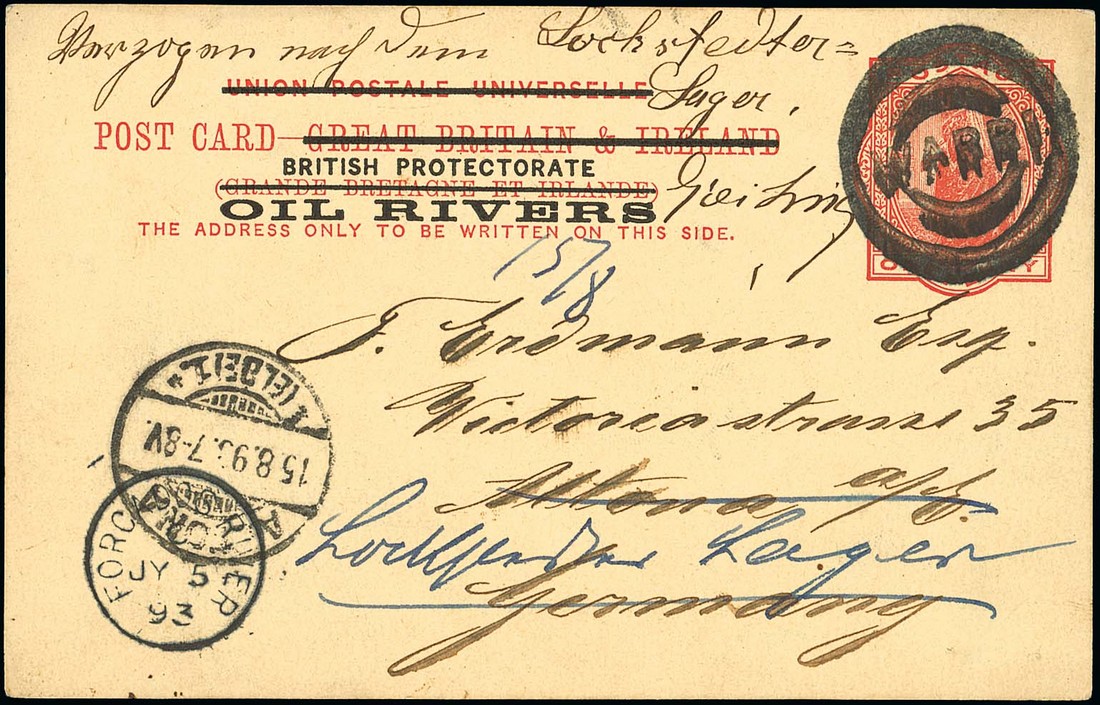 Verzogen nach dem Lockstedter=
Lager,
UNION POSTALE UNIVERSELLE
POST CARD—GREAT BRITAIN & IRELAND
BRITISH PROTECTORATE
(GRANDE BRETAGNE ET IRLANDE)
OIL RIVERS
THE ADDRESS ONLY TO BE WRITTEN ON THIS SIDE.
WARRI
15/8
F. Erdmann Esq.
Victoriastrasse 35
Altona a/E.
Lockstedter Lager
Germany
1 (ELBE) 1
15.8.93.7-8V.
FORCADOS RIVER
JY 5
93